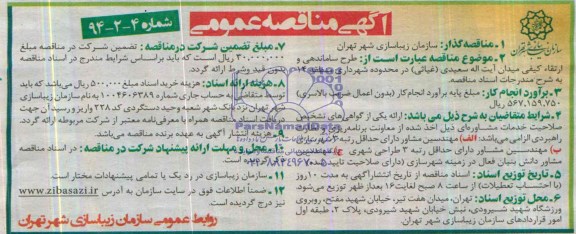 آگهی مناقصه عمومی
شماره ۴-۲-۹۴
سازمان زیباسازی شهر تهران
۱. مناقصه‌گذار: سازمان زیباسازی شهر تهران
۲. موضوع مناقصه عبارت است از: طرح ساماندهی و
ارتقاء کیفی میدان آیت اله سعیدی (غیاثی) در محدوده شهرداری منطقه ۱۴
به شرح مندرجات اسناد مناقصه.
۳. برآورد انجام کار: مبلغ پایه برآورد انجام کار (بدون اعمال ضریب بالاسری)
۵۶۷,۱۵۹,۷۵۰ ریال
۴. شرایط متقاضیان به شرح ذیل می باشد: ارائه یکی از گواهی‌های تشخیص
صلاحیت خدمات مشاوره‌ای ذیل اخذ شده از معاونت برنامه‌ریزی و نظارت
راهبردی الزامی می‌باشد: الف) مهندسین مشاور دارای حداقل رتبه
ب) مهندسین مشاور دارای حداقل رتبه ۳ طراحی شهری ج)
مشاور دانش بنیان فعال در زمینه شهرسازی (دارای صلاحیت
۵. تاریخ توزیع اسناد: اسناد مناقصه از تاریخ انتشار آگهی به مدت ۱۰ روز
(با احتساب تعطیلات) از ساعت ۸ صبح لغایت ۱۶ بعداز ظهر توزیع می‌شود.
۶. محل توزیع اسناد: تهران، میدان هفت تیر، خیابان شهید مفتح، روبروی
ورزشگاه شهید شیرودی، نبش خیابان شهید شیرودی، پلاک ۲، طبقه اول
امور قراردادهای سازمان زیباسازی شهر تهران
۷. مبلغ تضمین شرکت در مناقصه: تضمین شرکت در مناقصه مبلغ
۳۰,۰۰۰,۰۰۰ ریال است که باید براساس شرایط مندرج در اسناد مناقصه
بدون قید وشرط ارائه گردد.
۸. هزینه ارائه اسناد: هزینه خرید اسناد مبلغ ۵۰۰,۰۰۰ ریال می‌باشد که باید
توسط متقاضی به حساب جاری شماره ۱۰۰۴۶۰۶۳۸۹ به نام سازمان زیباسازی
شهر تهران نزد بانک شهر شعبه وحید دستگردی کد ۲۲۸ واریز و رسید آن جهت
دریافت اسناد مناقصه همراه با معرفی‌نامه معتبر از شرکت مربوطه ارائه گردد.
۹. هزینه انتشار آگهی به عهده برنده مناقصه می‌باشد.
۱۰. محل و مهلت ارائه پیشنهاد شرکت در مناقصه: در اسناد مناقصه
ذکر گردیده است.
۱۱. سازمان زیباسازی در رد یک یا تمامی پیشنهادات مختار است.
۱۲. ضمناً اطلاعات فوق در سایت سازمان به آدرس www.zibasazi.ir
نیز درج گردیده است.
روابط عمومی سازمان زیباسازی شهر تهران
ParsNamadData